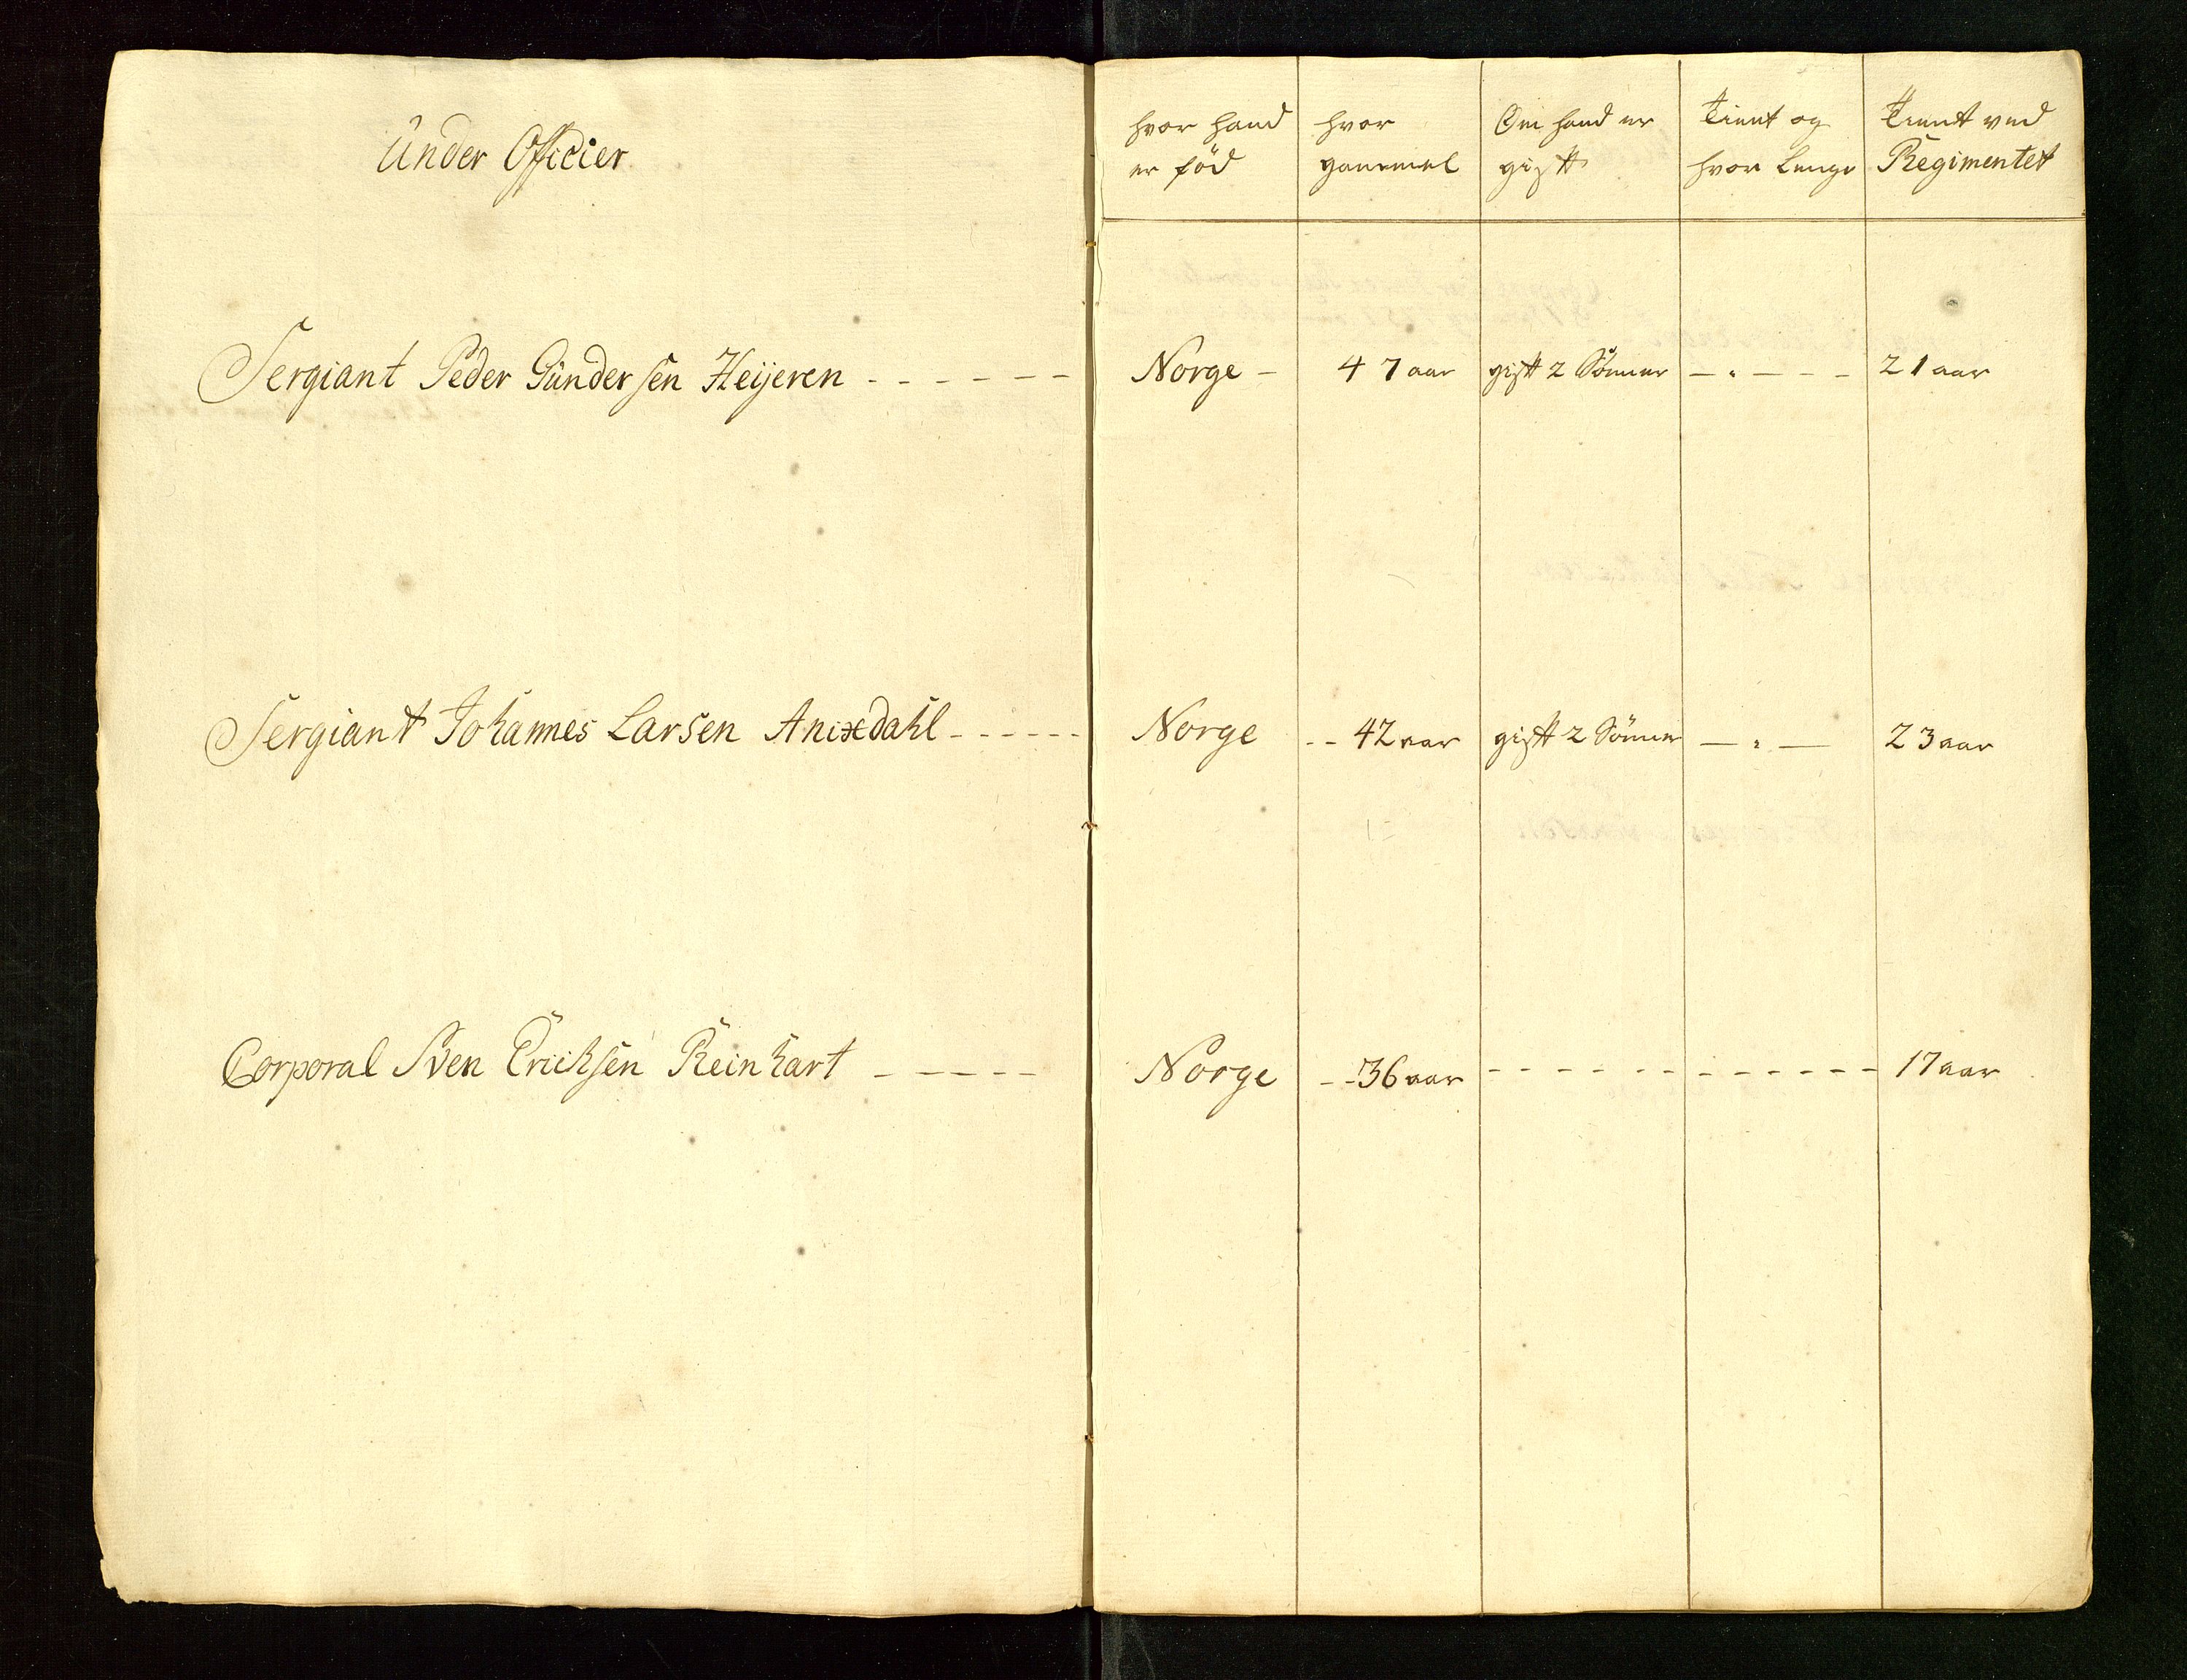 Under Officier
hvor hand er fød
hvor gammel
Om hand er gift
Tient og hvor Lenge
Tient ved Regimentet
Sergiant Peder Gündersen Heijeren - - - - - - Norge - 47 aar gift 2 Sønner - " - - - 21 aar
Sergiant Johannes Larsen Anixdahl - - - - - - Norge - - 42 aar gift 2 Sønner - " - 23 aar
Corporal Sven Erichsen Reinhart - - - - - Norge - - 36 aar - - - - - - - - - - - - 17 aar